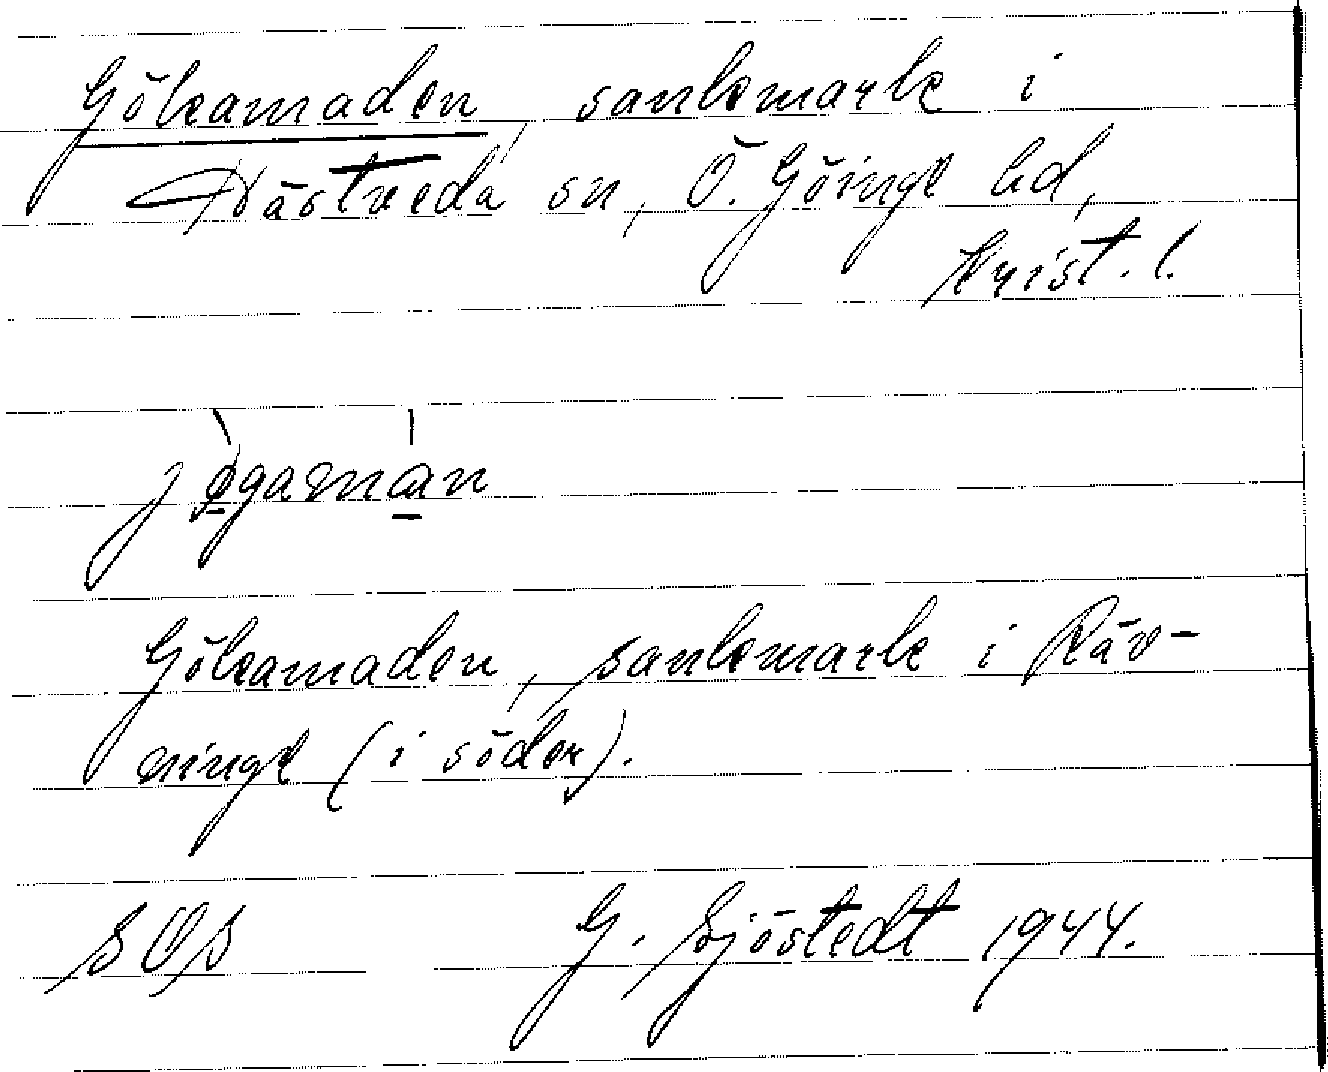 Gökamaden, sankmark i
Hästveda sn, Ö. Göinge hd,
Krist. l.
Gökamaden, sankmark i Räv-
ninge (i söder).
SOS G. Sjöstedt 1944.